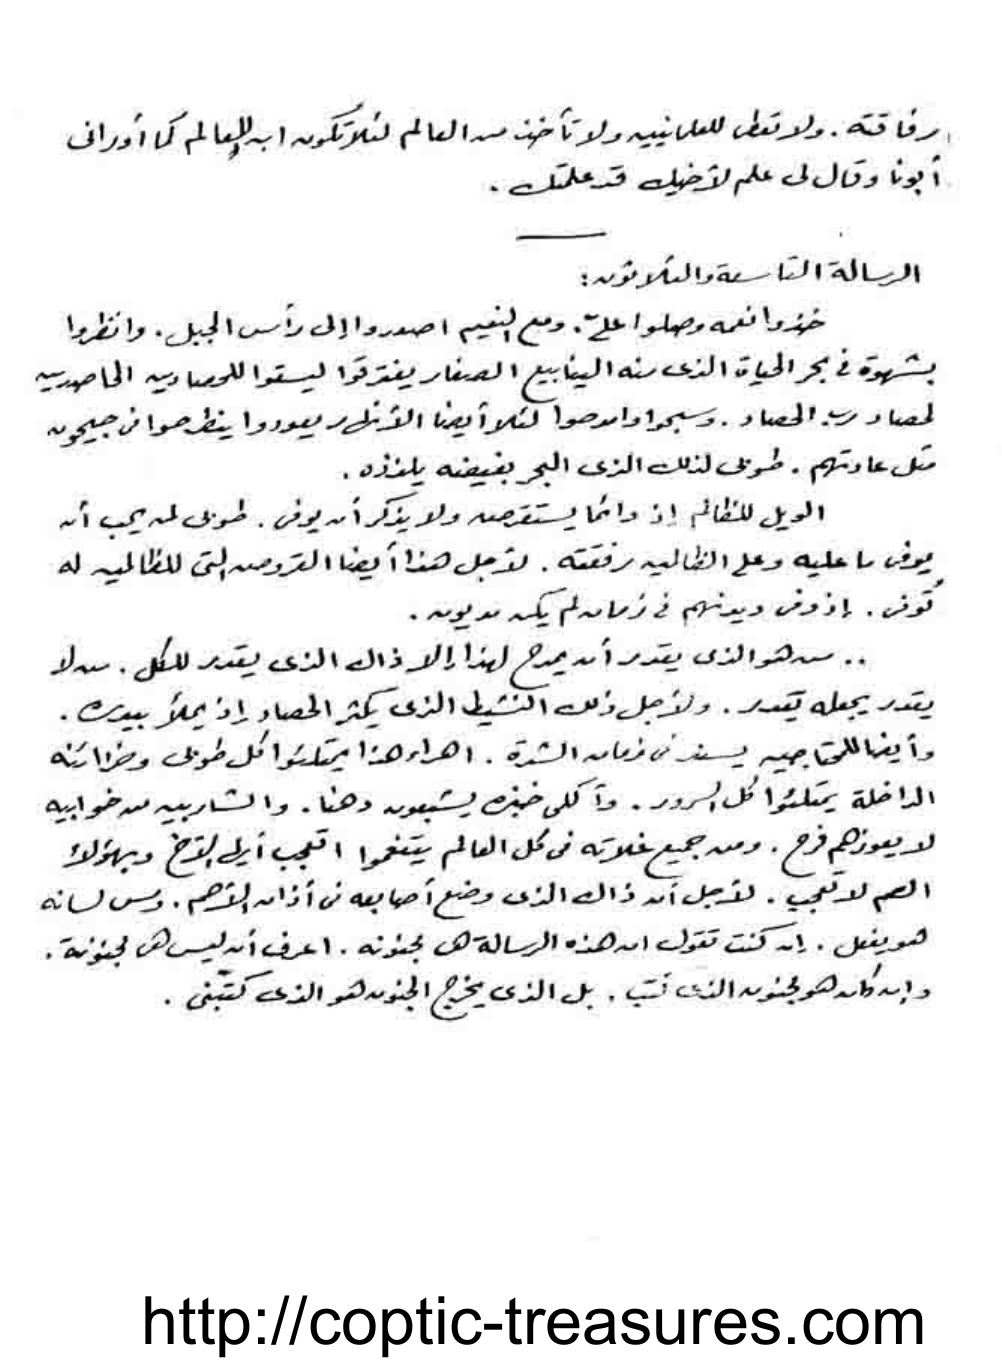 رفاقته . ولا تعطى للعلمانيين ولا تأخذ من العالم لئلا تكون ابن العالم كما أورانى
أبونا وقال لى علم لأخيك قد علمتك .
الرسالة التاسعة والثلاثون :
خذوا نعمه وصلوا علىّ . ومع النعيم اصعدوا إلى رأس الجبل . وانظروا
بشهوة فى بحر الحياة الذى منه الينابيع الصغار يفترقوا ليسقوا للحصادين الحاصدين
لحصاد رب الحصاد . وسبحوا وامدحوا لئلا أيضا يعودوا فى جيحون
مثل عادتهم . طوبى لذلك الذى البحر بفيضه يلذذه .
الويل للظالم إذ دائما يستقرض ولا يذكر أن يوفى . طوبى لمن يحب أن
يوفى ما عليه وعلى الظالمين رفقته . لأجل هذا أيضا القروض التى للظالمين له
تُوفى . إذ وفى ديونهم فى زمان لم يكن مديون .
.. من هو الذى يقدر أن يمدح لهذا إلا ذاك الذى يقدر للكل . من لا
يقدر يجعله يقدر . ولأجل ذلك النشيط الذى يكثر الحصاد إذ يملأ بيدره .
وأيضا للمحتاجين يسند فى زمان الشدة . اهراء هذا يمتلئوا كل طوبى وخزائنه
الداخلة يمتلئوا كل السرور . وآكلى خبزه يشبعون دهنا . والشاربين من خوابيه
لا يعوزهم فرح . ومن جميع غلاته فى كل العالم يتنعموا اتعجب أيها الأخ وبهؤلاء
الصم لا تعجب . لأجل أن ذاك الذى وضع أصابعه فى أذان الأصم . ومس لسانه
هو يفعل . إن كنت تقول ان هذه الرسالة هى مجنونه . اعرف أن ليس هى مجنونة .
وإن كان هو مجنون الذى كتب . بل الذى يخرج الجنون هو الذى كتّبنى .
http://coptic-treasures.com